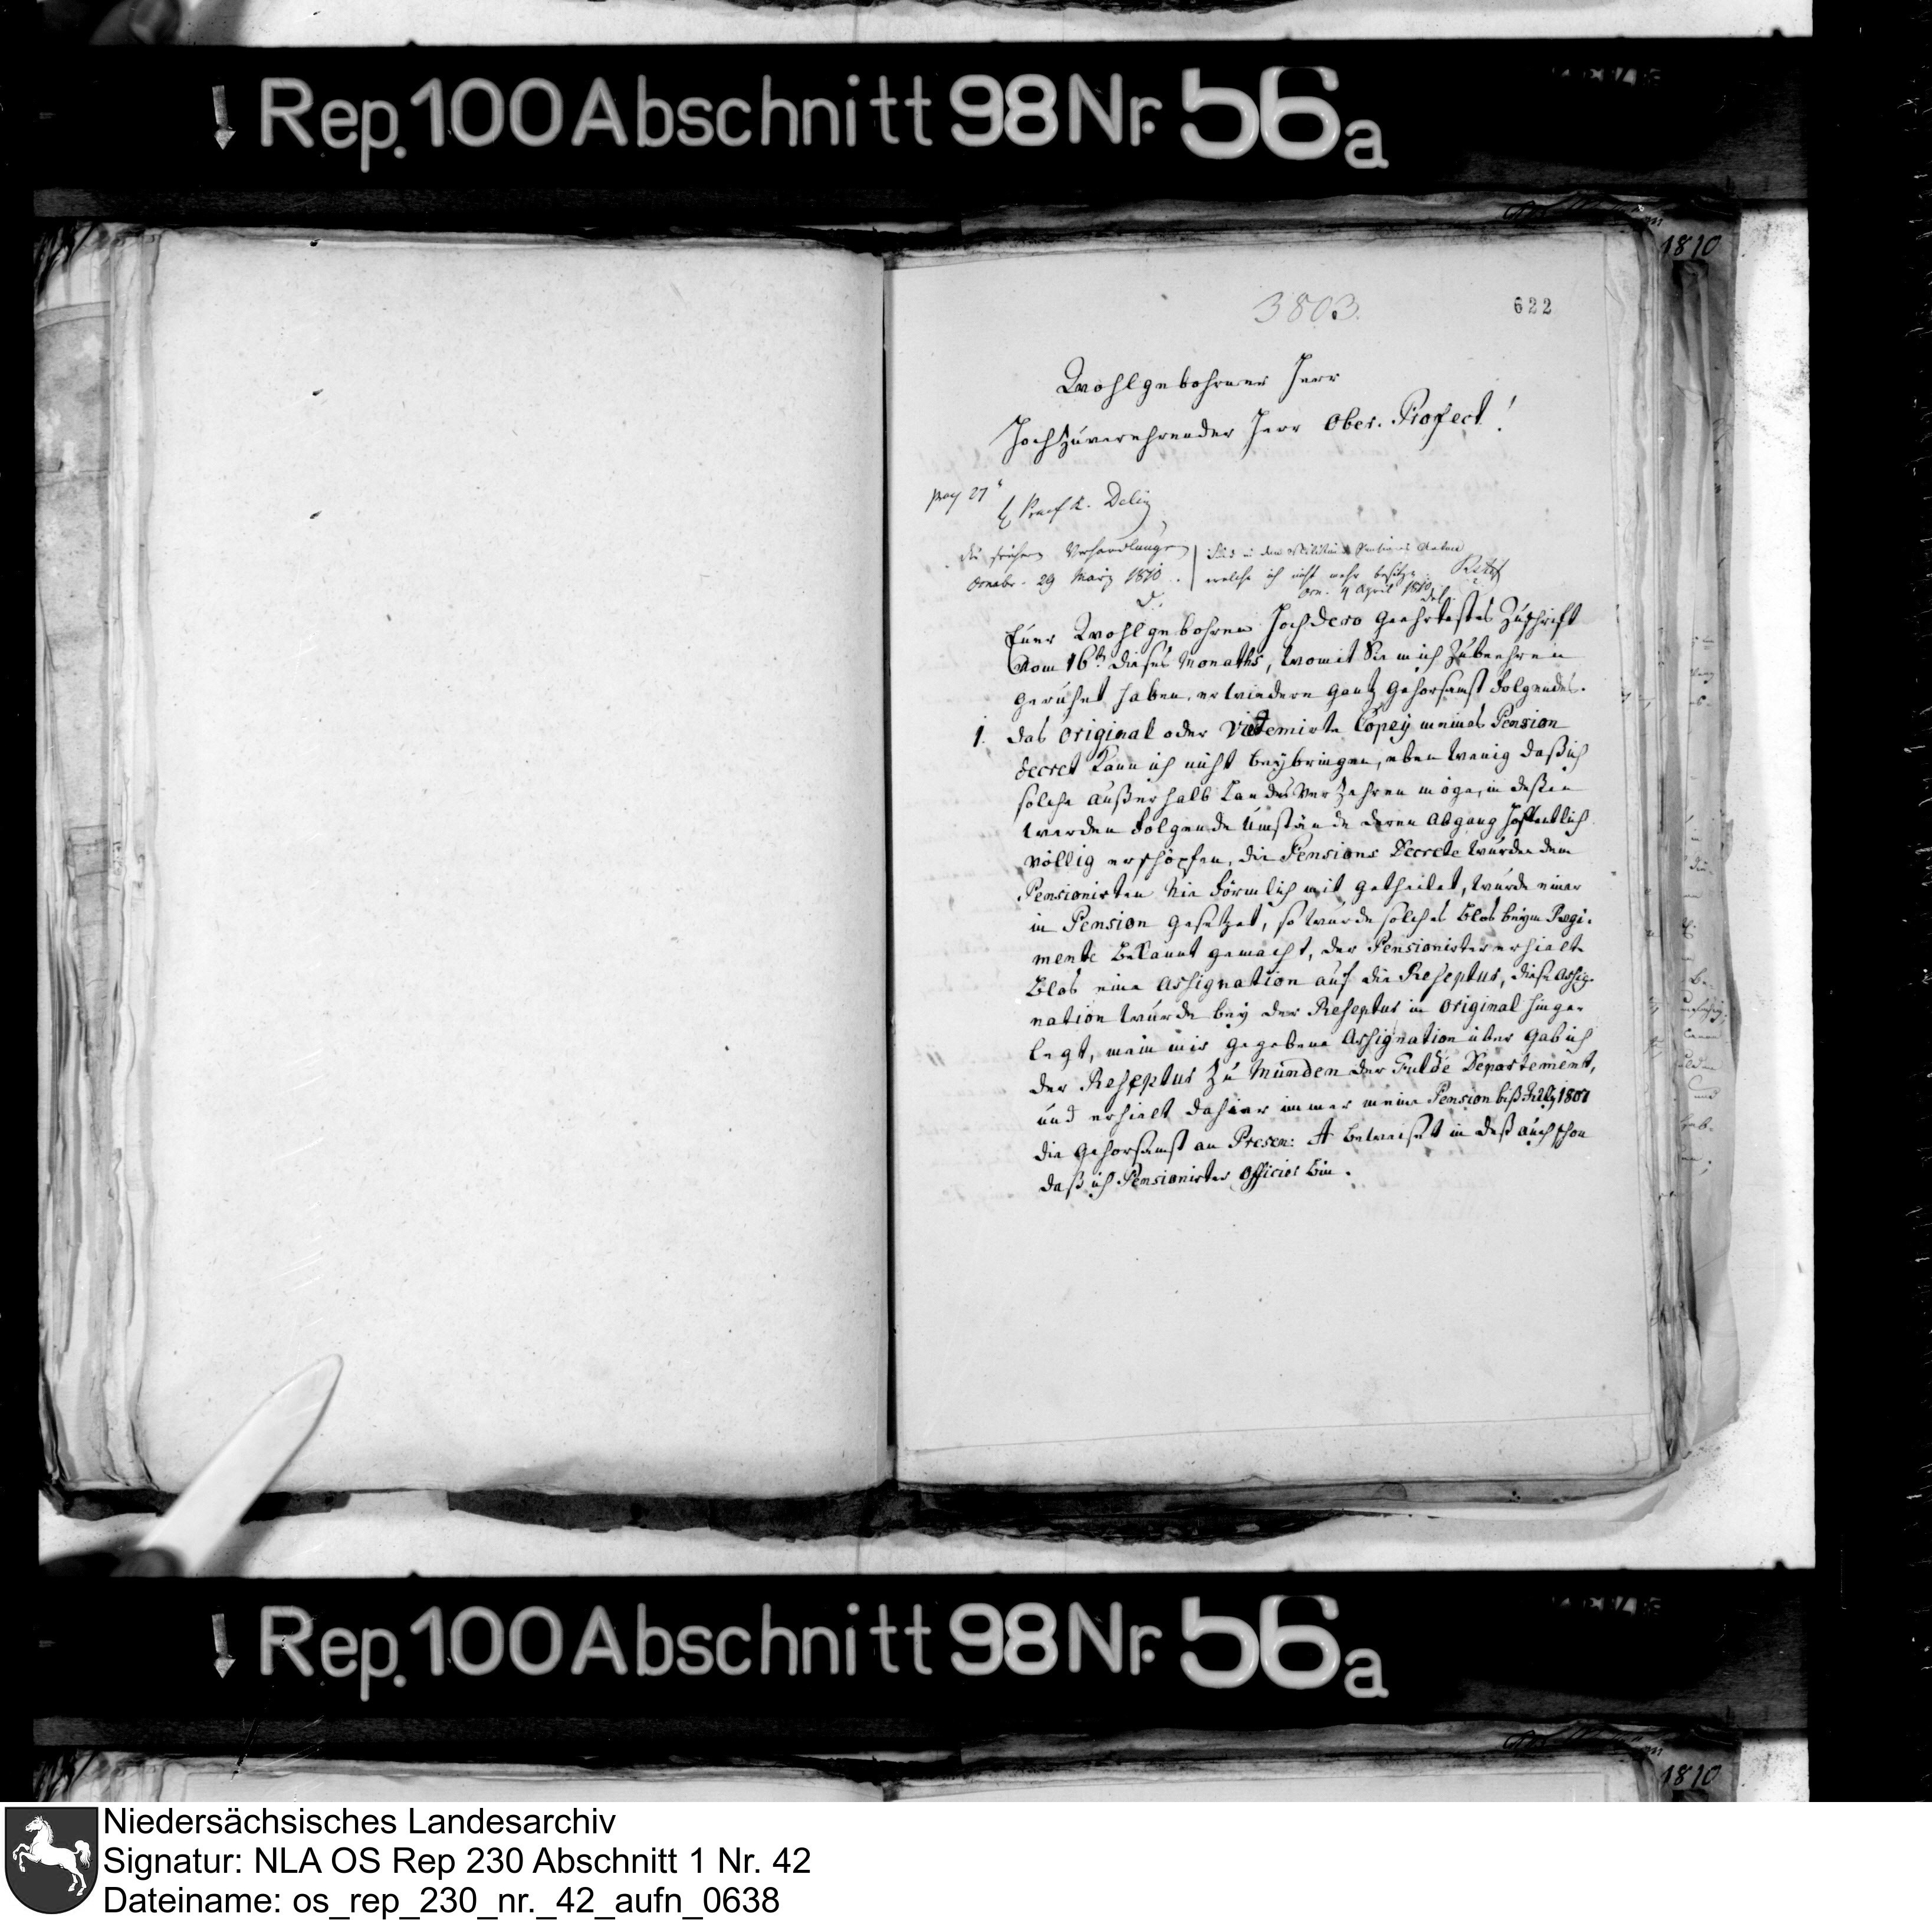 Rep. 100 Abschnitt 98 Nr. 56a
1810
3803.
622
Wohlgebohrner Herr
Hochzuverehrender Herr Ober-Præfect!
Præf. Deliz
die frühern Verhandlungen
Osnabr. 29 März 1810.
sind in den Militair Pensions Acten
welche ich nicht mehr besitze.
Osn. 4 April 1810
Euer Wohlgebohren Hochdero geehrtestes Zuschrift
vom 16ten dieses Monaths, womit Sie mich zubeehren
geruhet haben, erwiedere gantz gehorsamst folgendes.
1. das Original oder Videmirte Copey meines Pension
decret kann ich nicht beybringen, eben wenig daß ich
solche außerhalb Landes verzehren möge, in deßen
werden folgende Umstände deren Abgang hoffentlich
völlig erschöpfen, die Pensions Decrete wurden dem
Pensionisten nie förmlich mit getheilet, wurde einer
in Pension gesetzet, so wurde solches blos beym Regi-
mente bekannt gemacht, der Pensionister erhielte
blos eine Assignation auf die Reseptur, diese Assig-
nation wurde bey der Reseptur in Original hinge-
legt, mein mir gegebene Assignation über gab ich
der Reseptur zu Münden der Fulde Departement,
und erhielt dahier immer meine Pension biß July 1808
die gehorsamst an Presen: A beweiset in deß auch schon
daß ich Pensionister Officier bin.
Rep. 100 Abschnitt 98 Nr. 56a
1810
Niedersächsisches Landesarchiv
Signatur: NLA OS Rep 230 Abschnitt 1 Nr. 42
Dateiname: os_rep_230_nr._42_aufn_0638